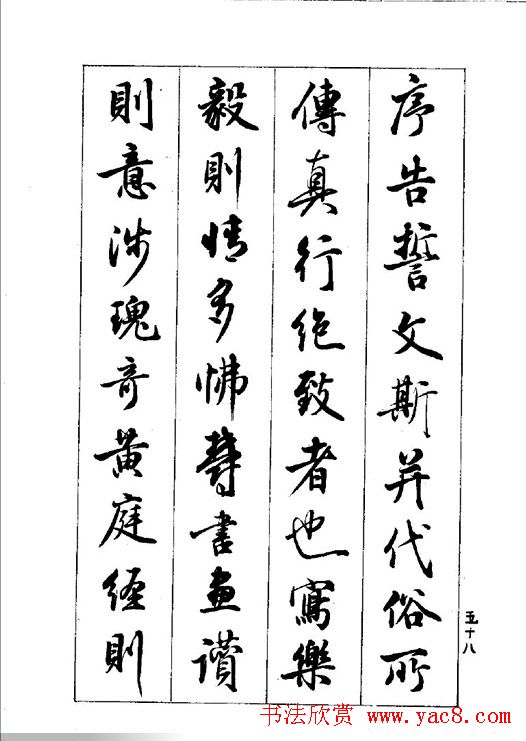 序告誓文斯并代俗所
傳真行绝致者也寫樂
毅則情多怫欝書畫讚
則意涉瑰奇黃庭經則
五十八
书法欣赏 www.yac8.com